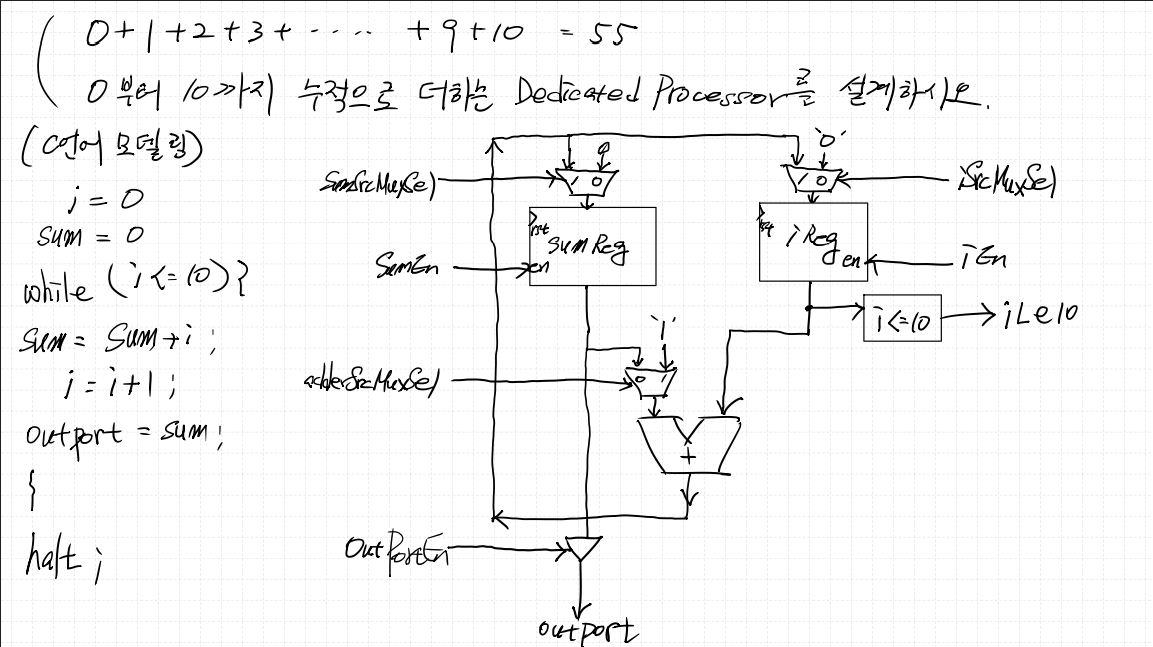 0 + 1 + 2 + 3 + ····· + 9 + 10 = 55
0부터 10까지 누적으로 더하는 Dedicated Processor를 설계하시오.
(C언어 모델링)
i = 0
sum = 0
while (i <= 10) {
sum = sum + i ;
i = i + 1 ;
outport = sum ;
}
halt ;
'0'
SumSrcMuxSel
1 0
1 0
iSrcMuxSel
rst
sumReg
en
SumEn
iReg
en
iEn
i <= 10
iLe10
'1'
adderSrcMuxSel
0 1
+
OutPortEn
outport